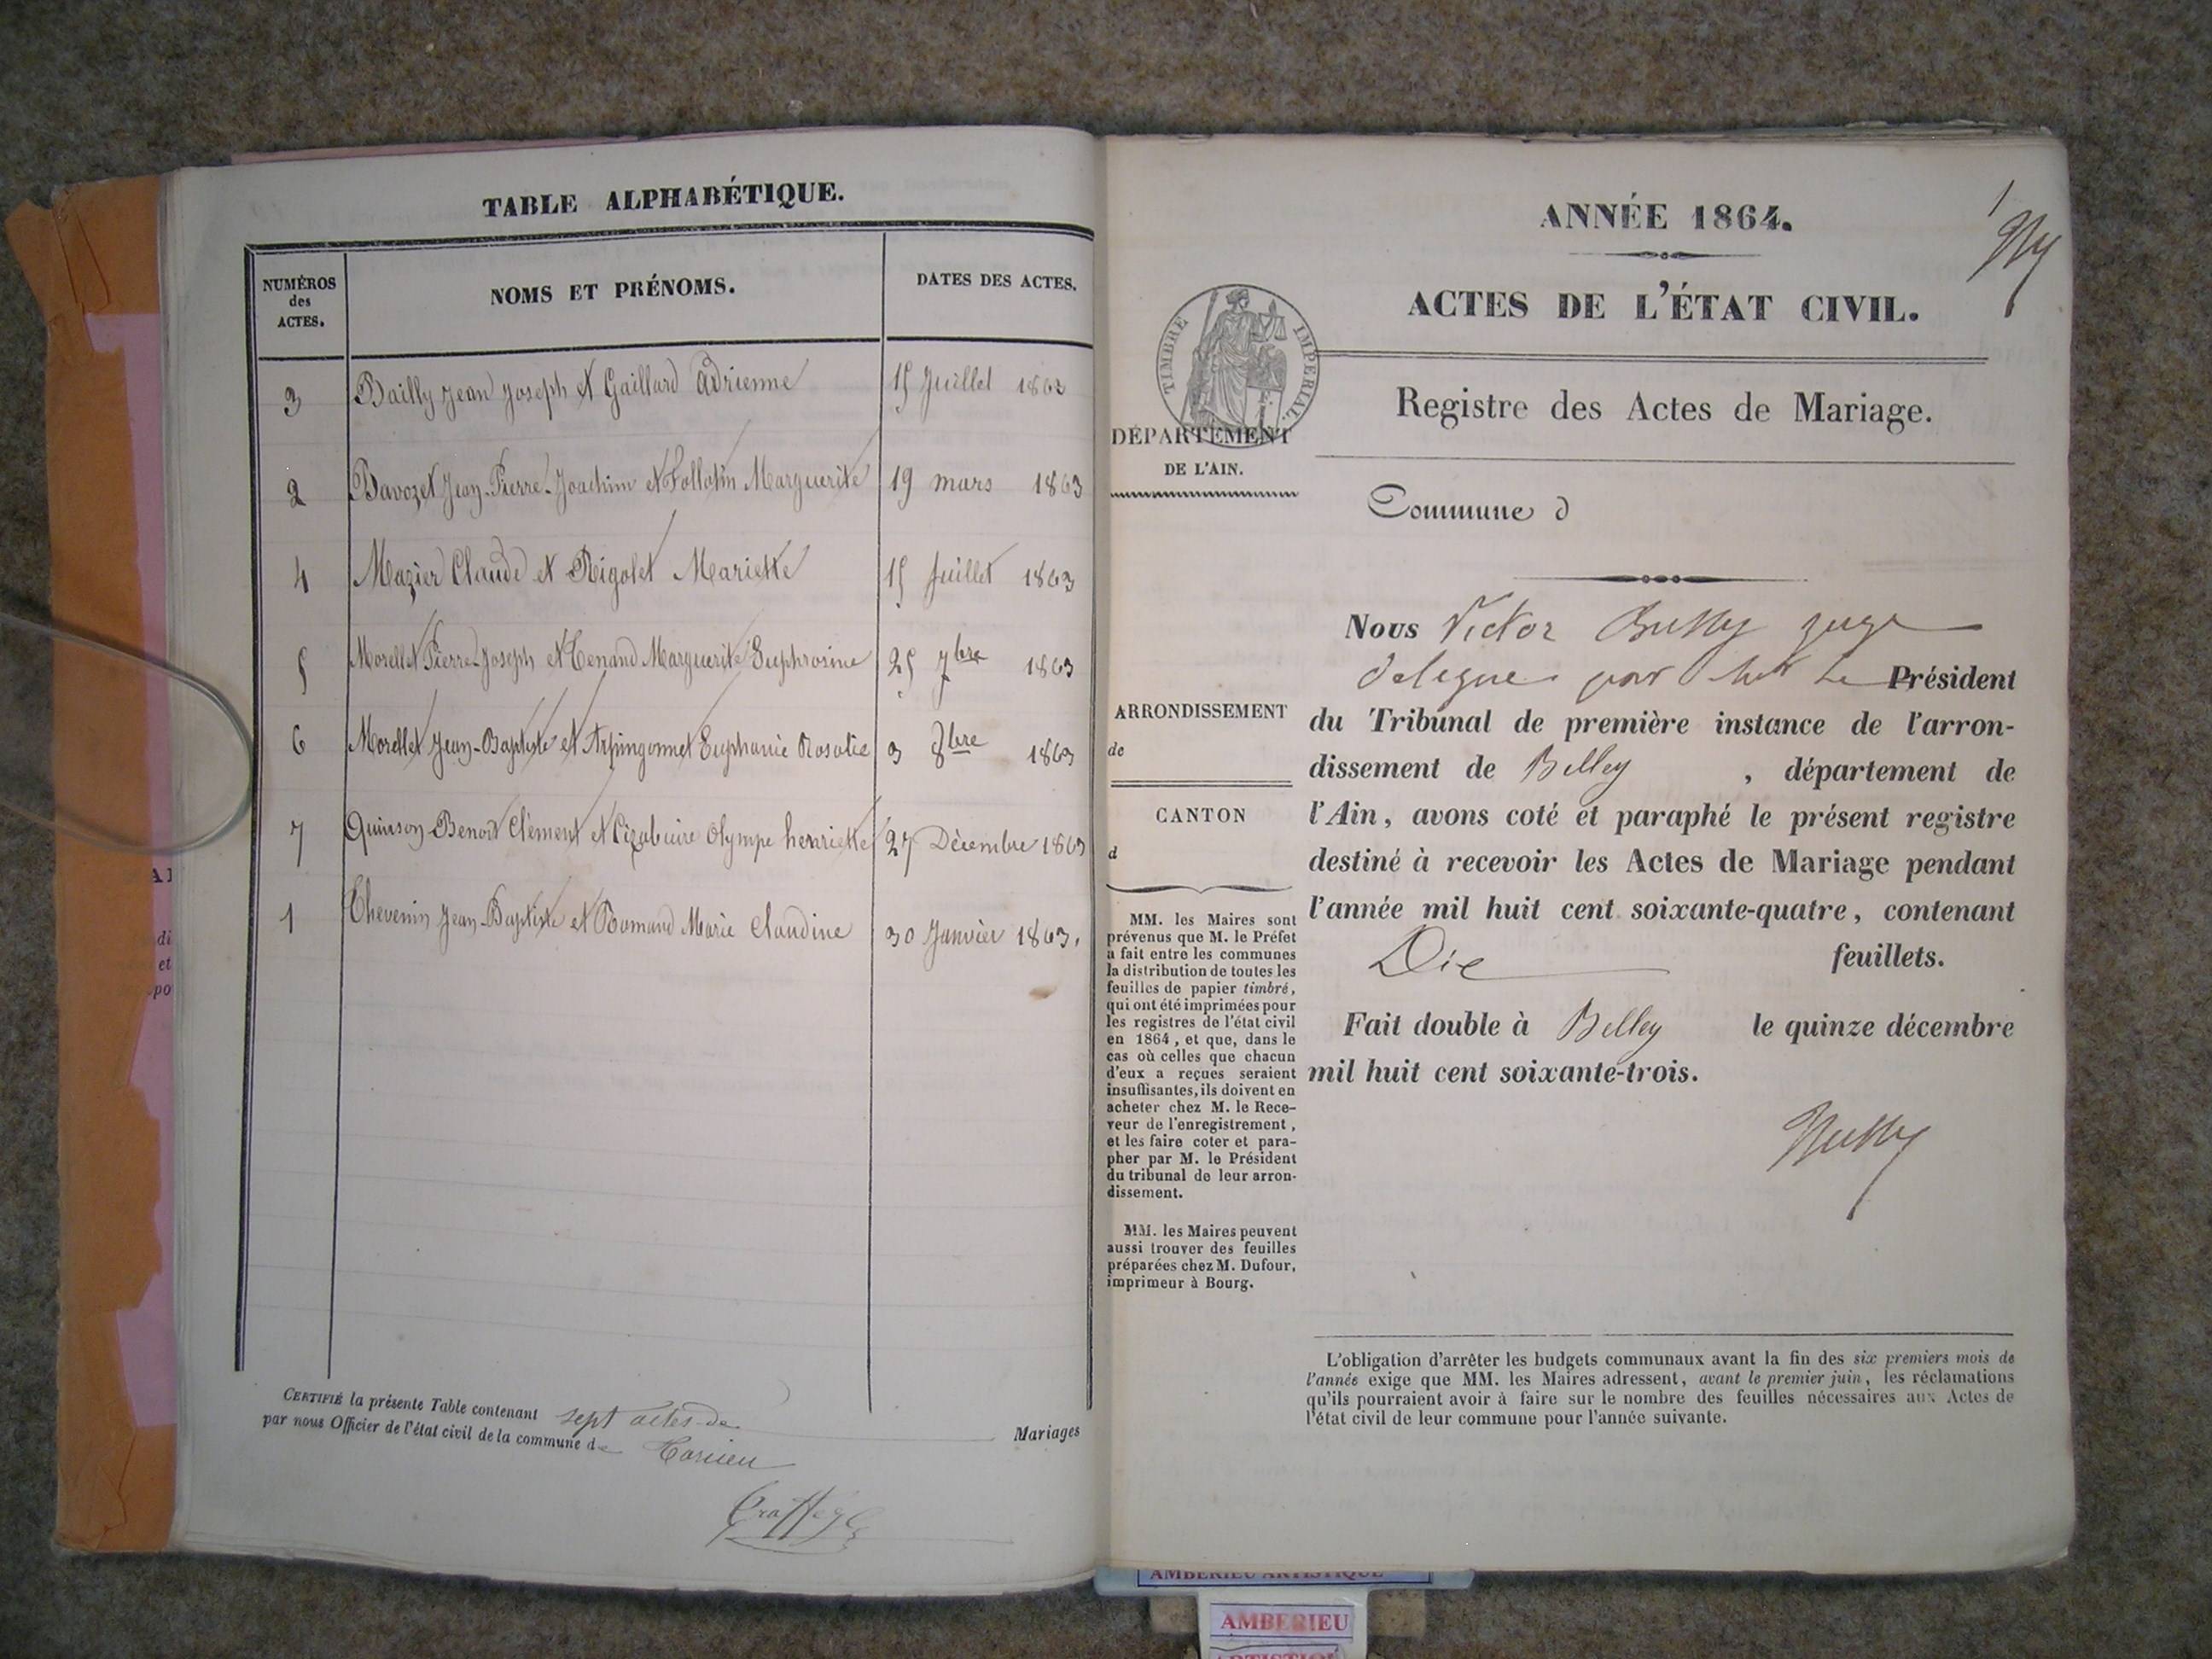 TABLE ALPHABÉTIQUE.
NUMÉROS
des
ACTES.
NOMS ET PRÉNOMS.
DATES DES ACTES.
3 Bailly Jean Joseph et Gaillard Adrienne 15 Juillet 1863
2 Bavozet Jean-Pierre-Joachim et Marguerite 19 mars 1863
4 Mazier Claude et Rigolet Mariette 15 Juillet 1863
5 Morellet Pierre-Joseph et Tenand Marguerite Euphrosine 25 7bre 1863
6 Morellet Jean-Baptiste et Euphanie Rosalie 3 8bre 1863
7 Quinson Benoit Clément et Olympe henriette 27 Décembre 1863
1 Thevenin Jean-Baptiste et Romand Marie Claudine 30 Janvier 1863.
CERTIFIÉ la présente Table contenant sept actes de Mariages
par nous Officier de l'état civil de la commune de
1
ANNÉE 1864.
ACTES DE L'ÉTAT CIVIL.
TIMBRE IMPÉRIAL.
Registre des Actes de Mariage.
DÉPARTEMENT
DE L'AIN.
Commune d
ARRONDISSEMENT
de
CANTON
d
MM. les Maires sont
prévenus que M. le Préfet
a fait entre les communes
la distribution de toutes les
feuilles de papier timbré,
qui ont été imprimées pour
les registres de l'état civil
en 1864, et que, dans le
cas où celles que chacun
d'eux a reçues seraient
insuffisantes, ils doivent en
acheter chez M. le Rece-
veur de l'enregistrement,
et les faire coter et para-
pher par M. le Président
du tribunal de leur arron-
dissement.
MM. les Maires peuvent
aussi trouver des feuilles
préparées chez M. Dufour,
imprimeur à Bourg.
Nous Victor juge
délégué par Le Président
du Tribunal de première instance de l'arron-
dissement de Belley, département de
l'Ain, avons coté et paraphé le présent registre
destiné à recevoir les Actes de Mariage pendant
l'année mil huit cent soixante-quatre, contenant
feuillets.
Fait double à Belley le quinze décembre
mil huit cent soixante-trois.
L'obligation d'arrêter les budgets communaux avant la fin des six premiers mois de
l'année exige que MM. les Maires adressent, avant le premier juin, les réclamations
qu'ils pourraient avoir à faire sur le nombre des feuilles nécessaires aux Actes de
l'état civil de leur commune pour l'année suivante.
AMBERIEU ARTISTIQUE
AMBERIEU